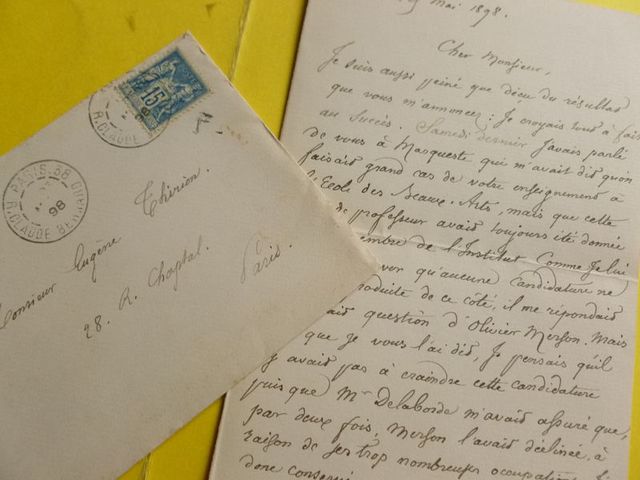 15
R. CLAUDE
PARIS-68
R. CLAUDE BER
98
Monsieur Eugène Thirion.
28. R. Chaptal.
Paris.
Mai 1898.
Cher Monsieur,
Je suis aussi peiné que déçu du résultat
que vous m'annoncez; Je croyais tout à fait
au Succès. Samedi dernier J'avais parlé
de vous à Marqueste qui m'avait dit qu'on
faisait grand cas de votre enseignement à
l'Ecole des Beaux-Arts, mais que cette
de professeur avait toujours été donnée
membre de l'Institut. Comme Je lui
qu'aucune candidature ne
produite de ce côté, il me répondait
question d'Olivier Merson. Mais
que je vous l'ai dit, Je pensais qu'il
n'y avait pas à craindre cette candidature
puis que Mr Delaborde m'avait assuré que,
par deux fois, Merson l'avait déclinée, à
raison de ses trop nombreuses occupations.
donc